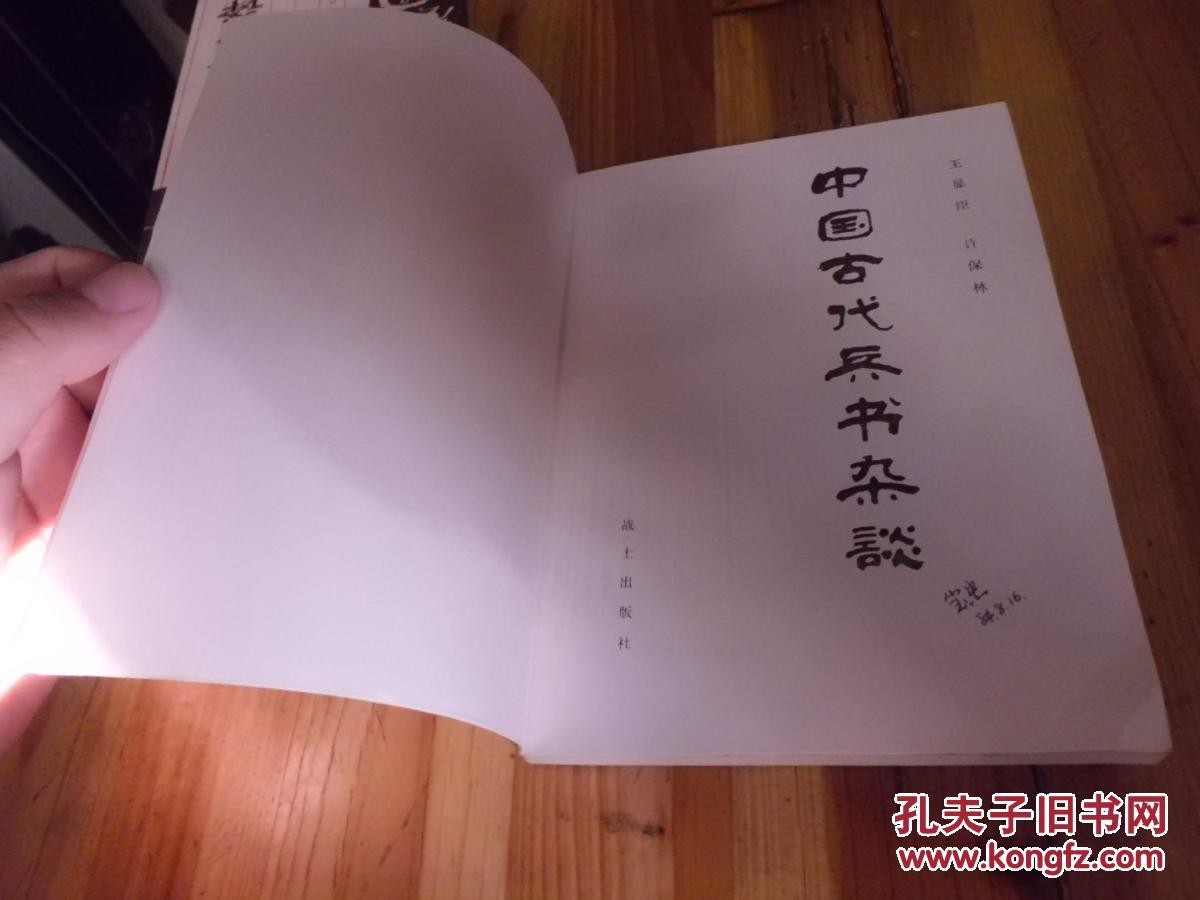 王显臣 许保林
中国古代兵书杂談
战士出版社
84.8.16.
孔夫子旧书网
www.kongfz.com